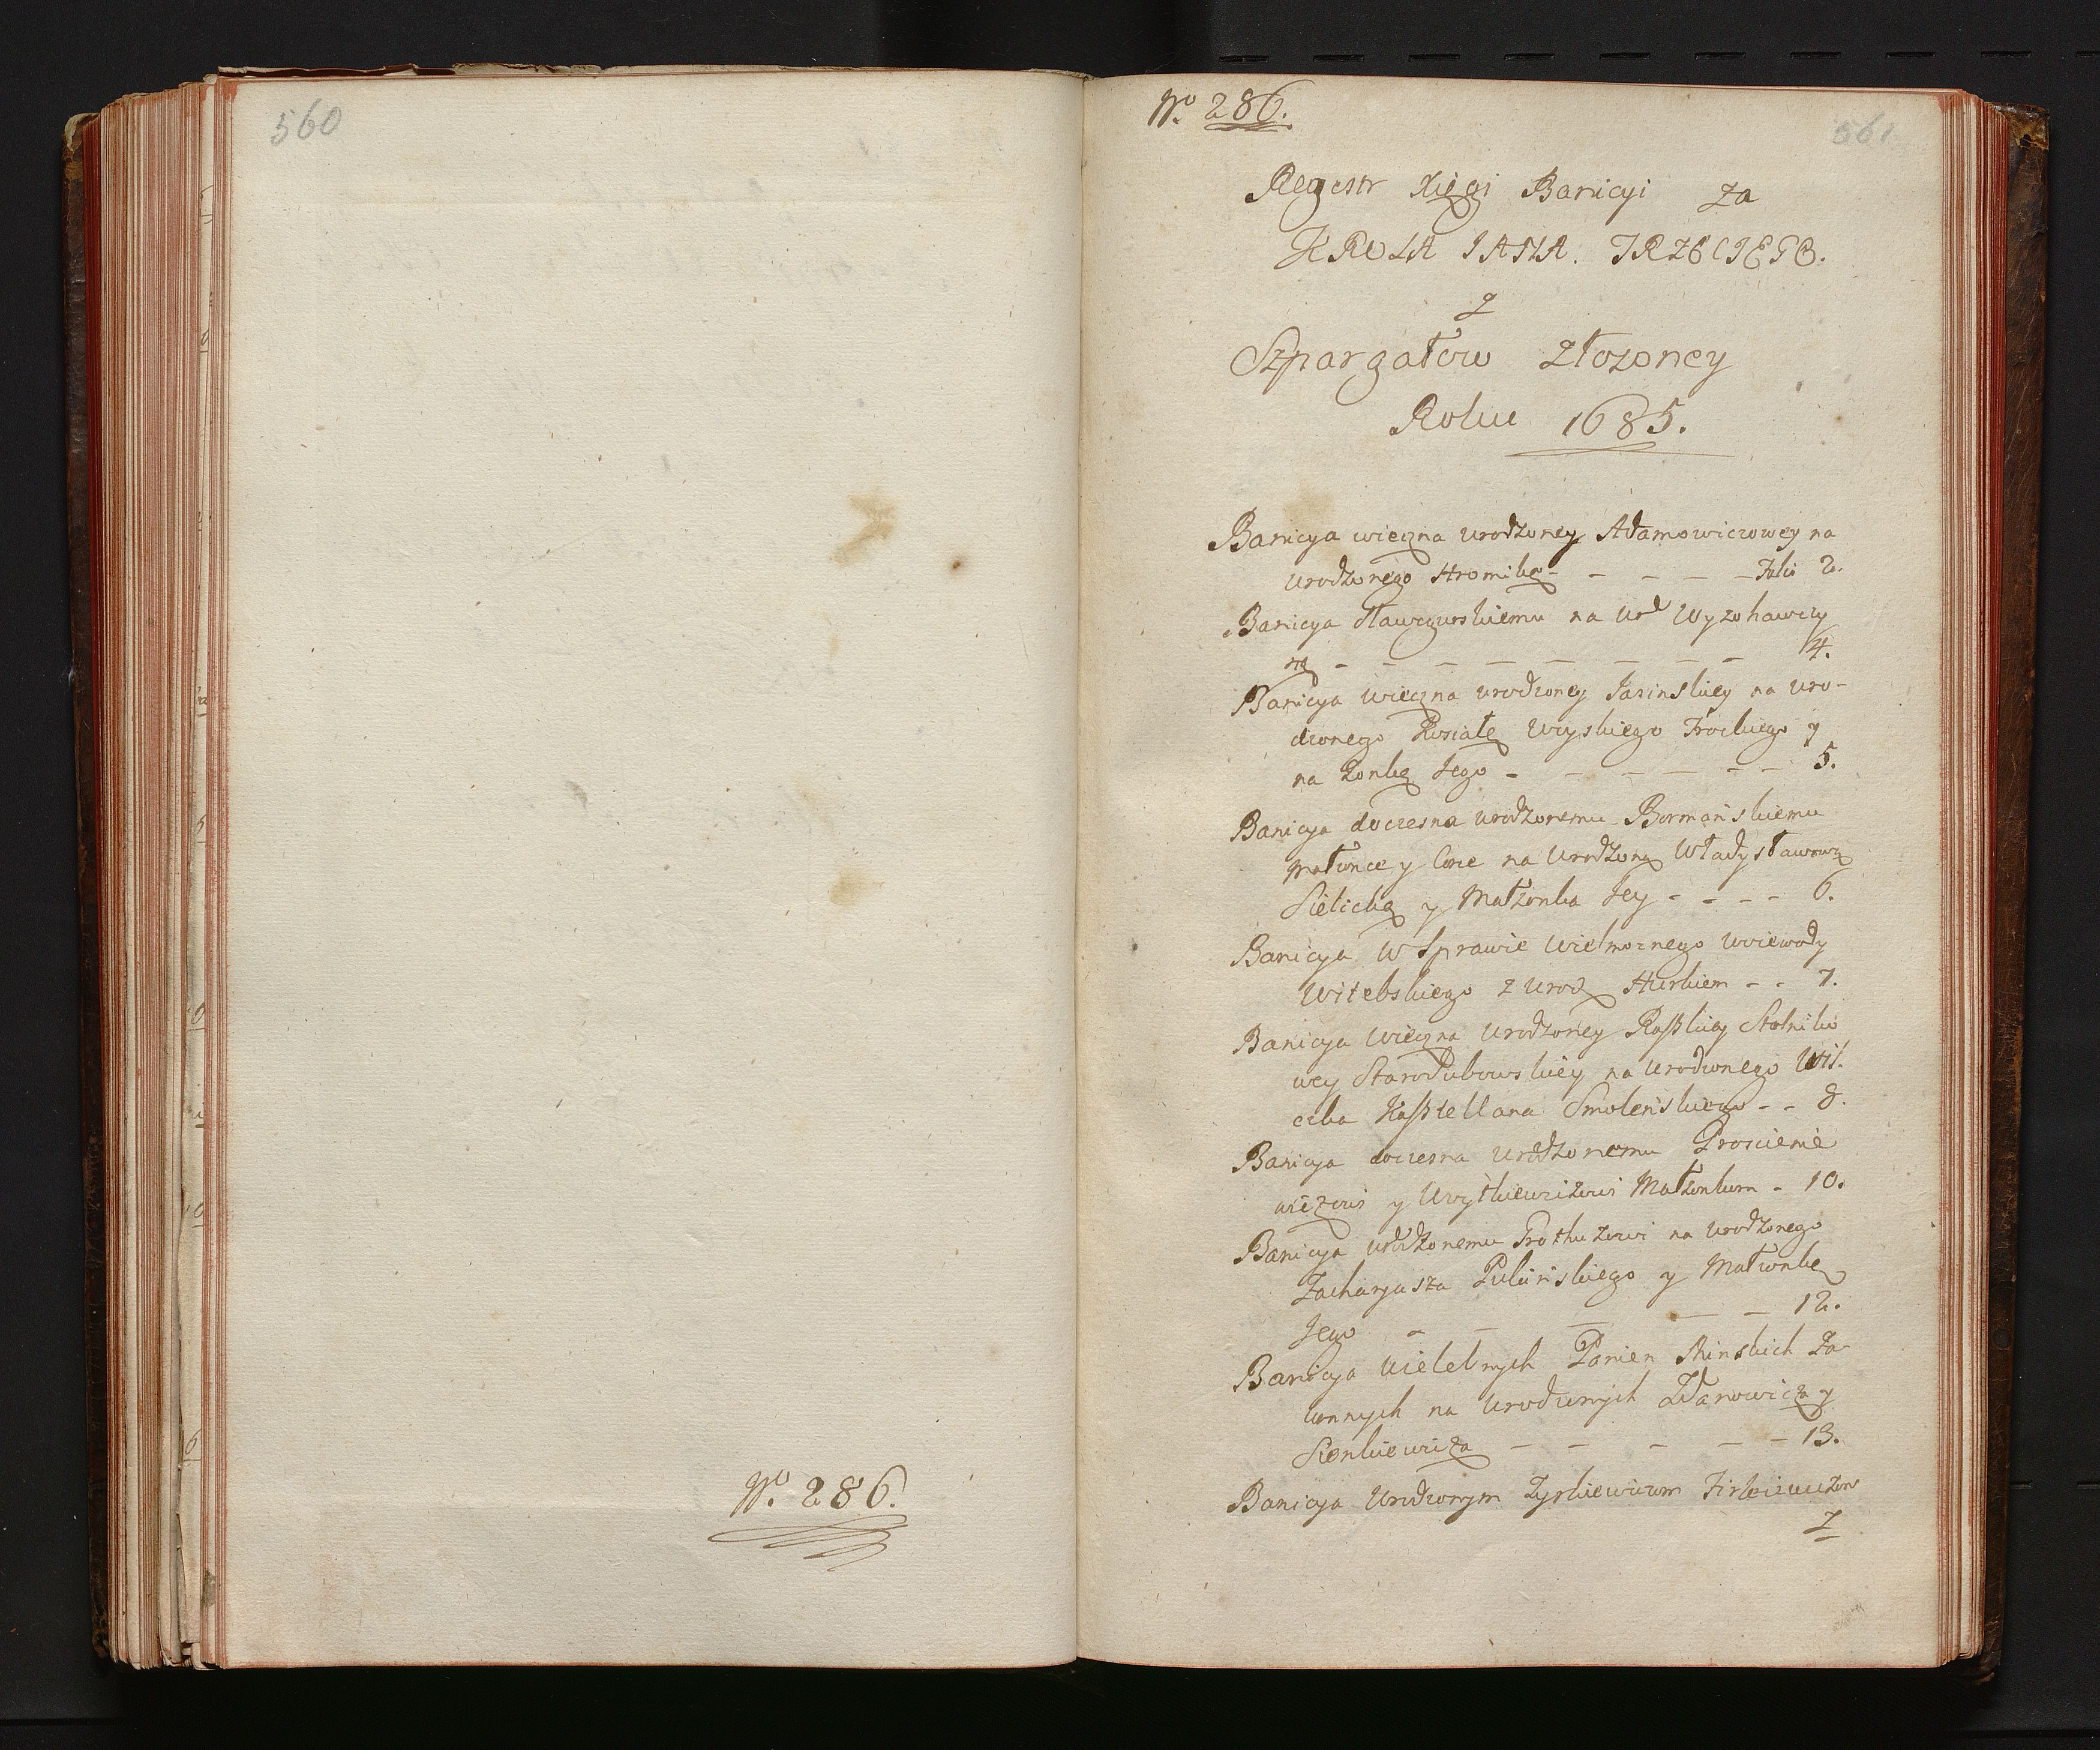 560
No 286.
No 286.
561
Regestr Xięgi Banicyi za
KROLA JANA. TRZECIEGO.
z
Szpargałow złozoney
Roku 1685.
Banicya wieczna urodzoney Adamowiczowey na
urodzonego Hromikę - - - - - Folio 2.
Banicya Sławgurskiemu na Urd
ną - - - - - - - - 4.
Banicya wieczna urodzoney Jasinskiey na uro-
dzonego Woyskiego Trockiego y
na Zonkę Jego - - - - - - 5.
Banicya doczesna urodzonemu Bormańskiemu
Małzonce y Corce na Urodzoną Władysławową
Sielicką y Małzonka Jey - - - - 6.
Banicya w Sprawie Wielmoznego Woiewody
Witebskiego z Urodz Hurkiem - - 7.
Banicya Wieczna Urodzoney Stolniko
wey Starodubowskiey na Urodzonego
Kaßtellana Smoleńskiego - - 8.
Banicya doczesna urodzonemu Proscieniе
wiczowi y Małzonkom - 10.
Banicya urodzonemu Protkuzowi na urodzonego
Zacharyasza y Małzonkę
Jego - - - - - 12.
Banicya Wielebnych Panien Minskich Za-
konnych na Urodzonych Zdanowicza y
Sienkiewicza - - - - - 13.
Banicya Urodzonym
z